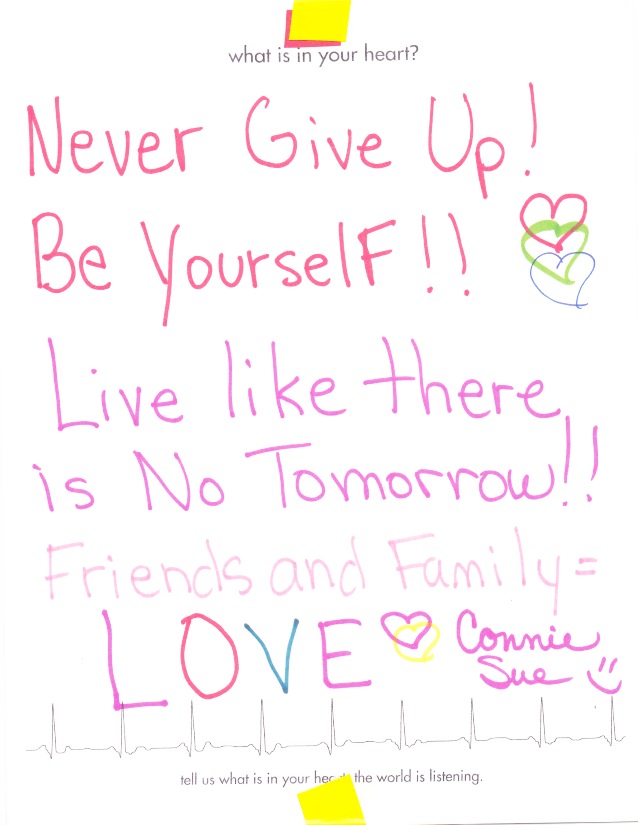 what is in your heart?
Never Give Up!
Be Yourself!!
Live like there
is No Tomorrow!!
Friends and Family =
LOVE Connie
Sue
tell us what is in your heart. the world is listening.